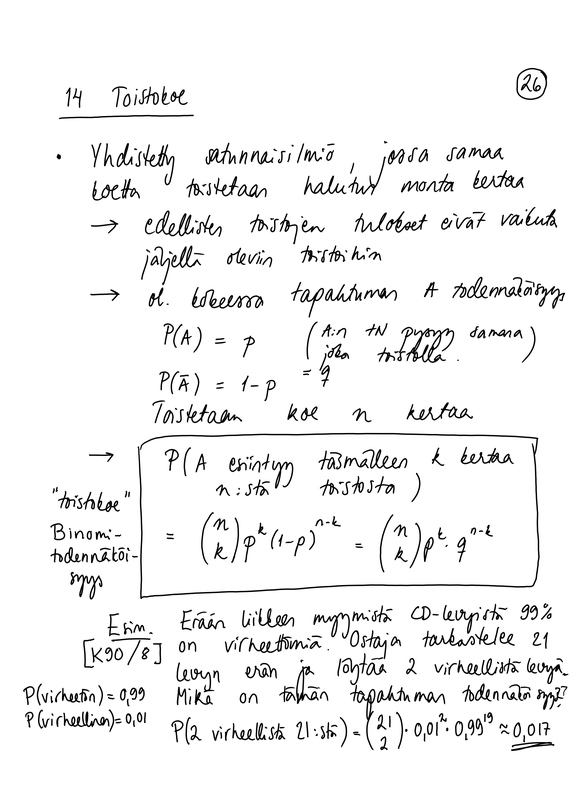 26
14 Toistokoe
• Yhdistetty satunnaisilmiö, jossa samaa
koetta toistetaan halutun monta kertaa
→ edellisten toistojen tulokset eivät vaikuta
jäljellä oleviin toistoihin
→ ol. kokeessa tapahtuman A todennäköisyys
P(A) = p (A:n tN pysyy samana
joka toistolla.)
P(Ā) = 1-p = q
Toistetaan koe n kertaa
→ P(A esiintyy täsmälleen k kertaa
n:stä toistosta)
"toistokoe"
Binomi-
todennäköi-
syys
= (n k) p^k (1-p)^{n-k} = (n k) p^k · q^{n-k}
Esim. Erään liikkeen myymistä CD-levyistä 99%
[K90/8] on virheettömiä. Ostaja tarkastelee 21
levyn erän ja löytää 2 virheellistä levyä.
P(virheetön) = 0,99 Mikä on tämän tapahtuman todennäköisyys?
P(virheellinen) = 0,01
P(2 virheellistä 21:stä) = (21 2) · 0,01² · 0,99¹⁹ ≈ 0,017